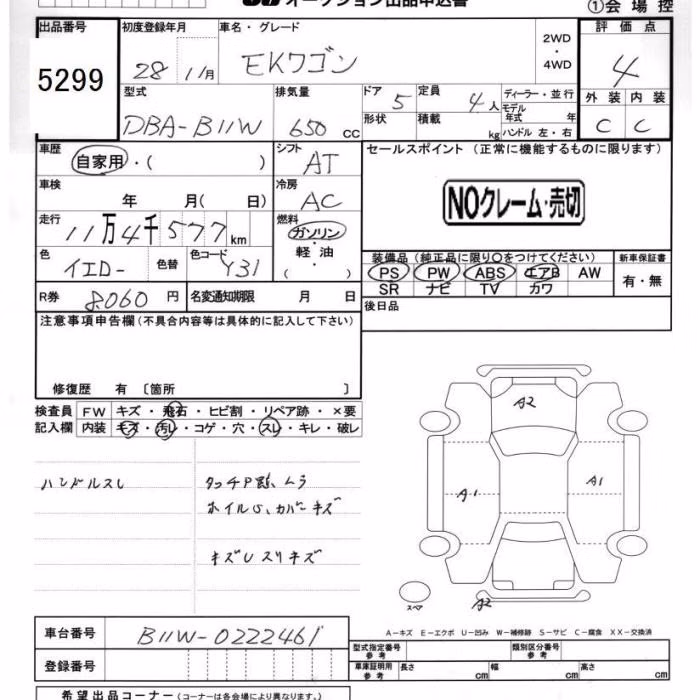 オークション出品申込書
①会場控
出品番号 初度登録年月 車名・グレード 評価点
5299 28 11月 EKワゴン 2WD・4WD 4
型式 排気量 ドア 定員 ディーラー・並行 外装 内装
DBA-B11W 650 cc 5 4人 モデル年式 年 C C
形状 積載 kg ハンドル 左・右
車歴 シフト セールスポイント (正常に機能するものに限ります)
自家用・( ) AT
車検 冷房
年 月( 日) AC NOクレーム・売切
走行 燃料
11万4千577km ガソリン・軽油・( )
装備品 (純正品に限り○をつけてください) 新車保証書
色 イエロー 色替 色コード Y31 PS PW ABS エアB AW 有・無
SR ナビ TV カワ
R券 8060円 名変通知期限 月 日 後日品
注意事項申告欄 (不具合内容等は具体的に記入して下さい)
修復歴 有 〔箇所 〕
検査員 FW キズ・飛石・ヒビ割・リペア跡・×要
記入欄 内装 キズ・汚レ・コゲ・穴・スレ・キレ・破レ
ハンドルスレ
ムラ
ホイルU、カバーキズ
キズUスリキズ
A2
A1
A1
A2
スペア
A-キズ E-エクボ U-凹み W-補修跡 S-サビ C-腐食 XX-交換済
車台番号 B11W-0222461
型式指定番号 参考 類別区分番号 参考
登録番号 車庫証明用 参考 長さ cm 幅 cm 高さ cm
希望出品コーナー (コーナーは各会場により異なります)